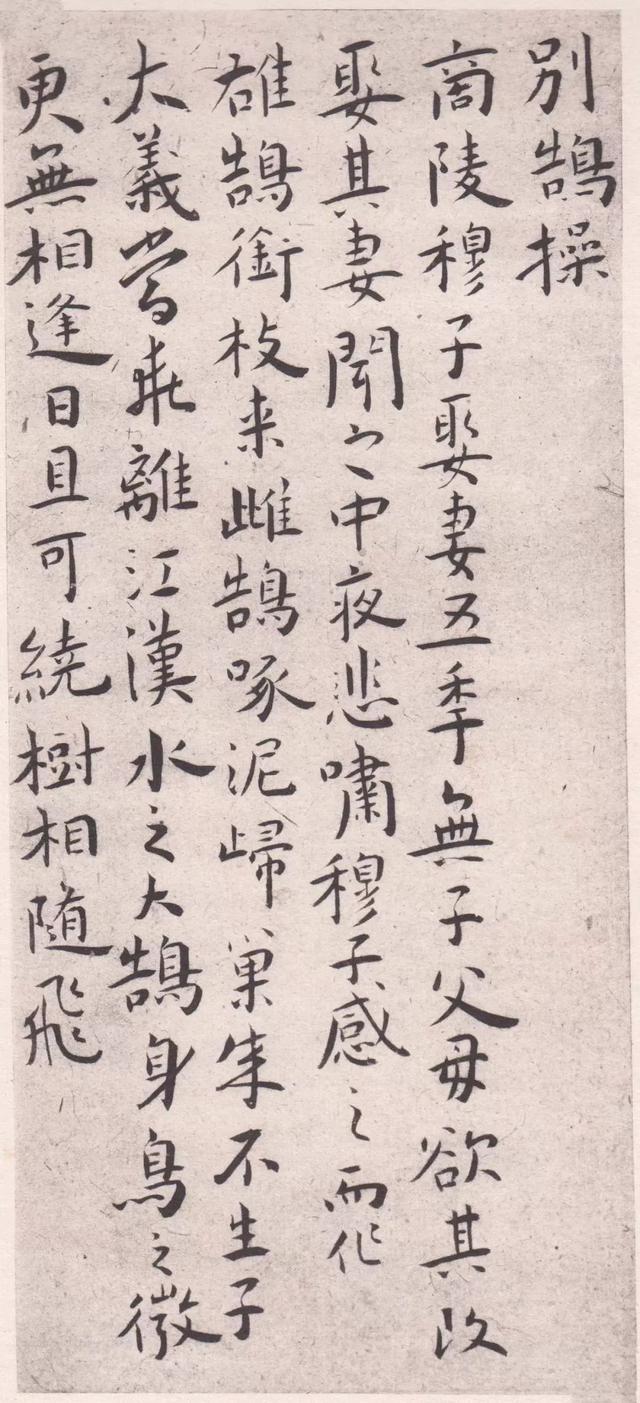 別鵠操
商陵穆子娶妻五秊無子父母欲其改
娶其妻聞之中夜悲嘯穆子感之而作
雄鵠銜枝来雌鵠啄泥歸巢成不生子
大義當乖離江漢水之大鵠身鳥之微
更無相逢日且可繞樹相随飛